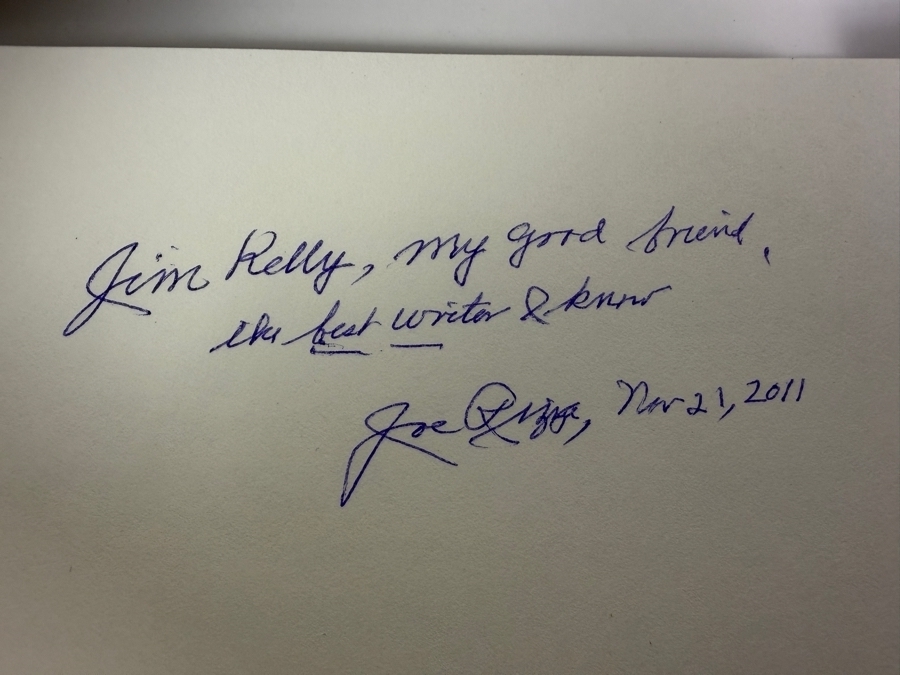 Jim Kelly, my good friend,
the best writer I know
Joe Rizza, Nov 21, 2011